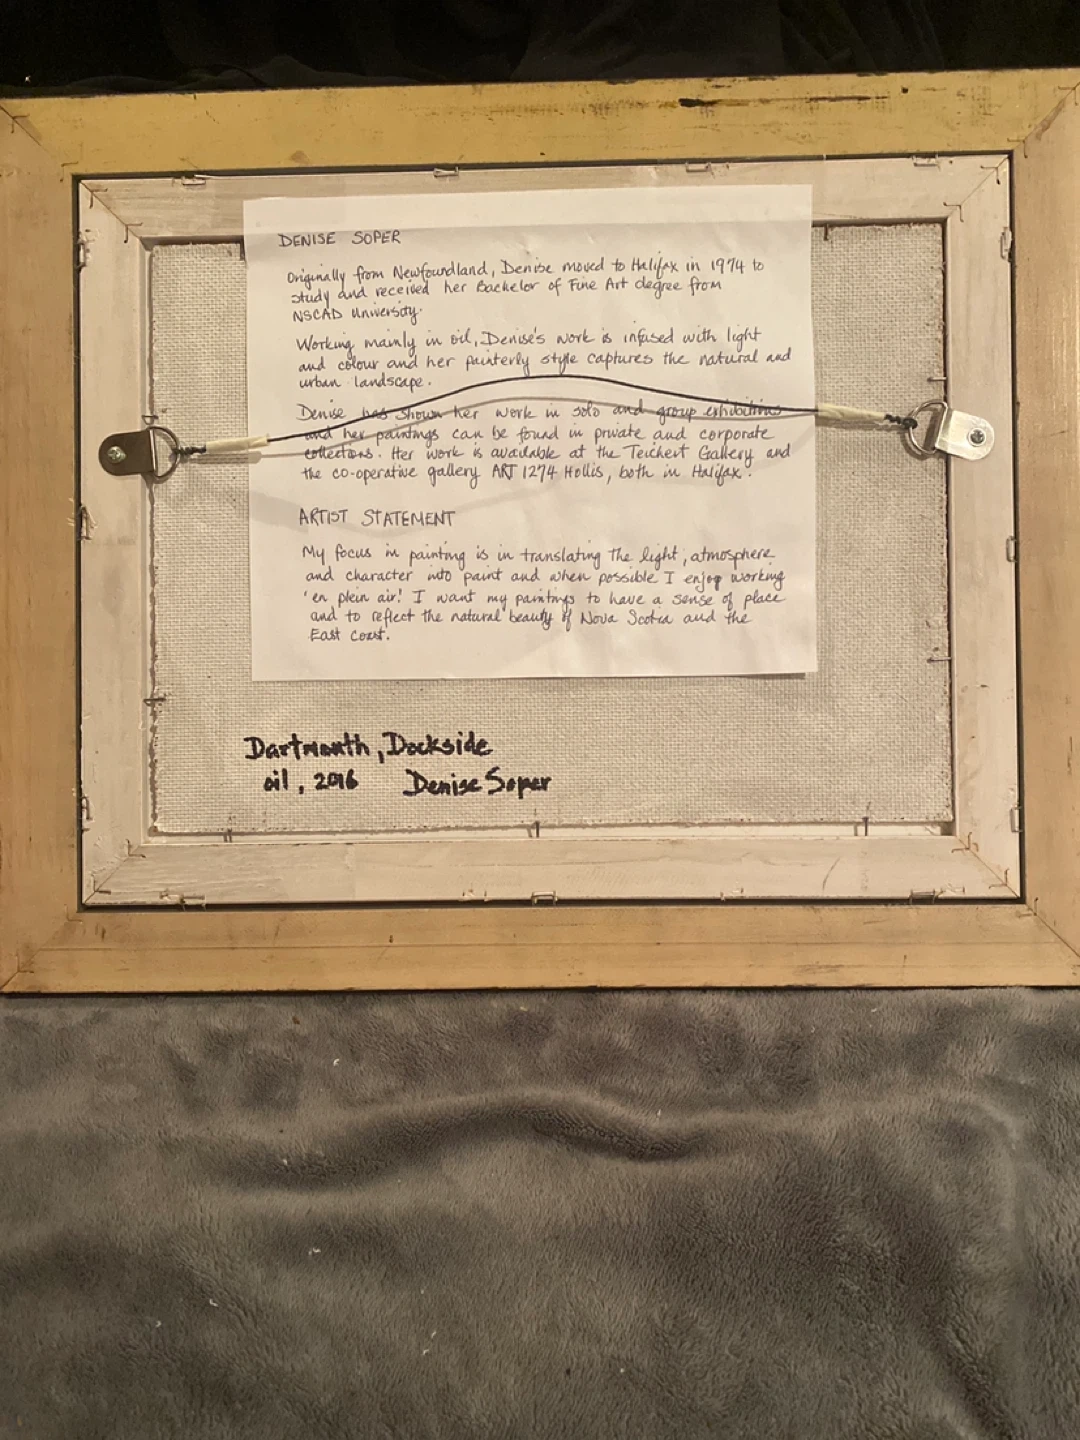 DENISE SOPER
Originally from Newfoundland, Denise moved to Halifax in 1974 to
study and received her Bachelor of Fine Art degree from
NSCAD University.
Working mainly in oil, Denise's work is infused with light
and colour and her painterly style captures the natural and
urban landscape.
Denise has shown her work in solo and group exhibitions
and her paintings can be found in private and corporate
collections. Her work is available at the Teichert Gallery and
the co-operative gallery ART 1274 Hollis, both in Halifax.
ARTIST STATEMENT
My focus in painting is in translating the light, atmosphere
and character into paint and when possible I enjoy working
'en plein air! I want my paintings to have a sense of place
and to reflect the natural beauty of Nova Scotia and the
East Coast.
Dartmouth, Dockside
oil, 2016 Denise Soper